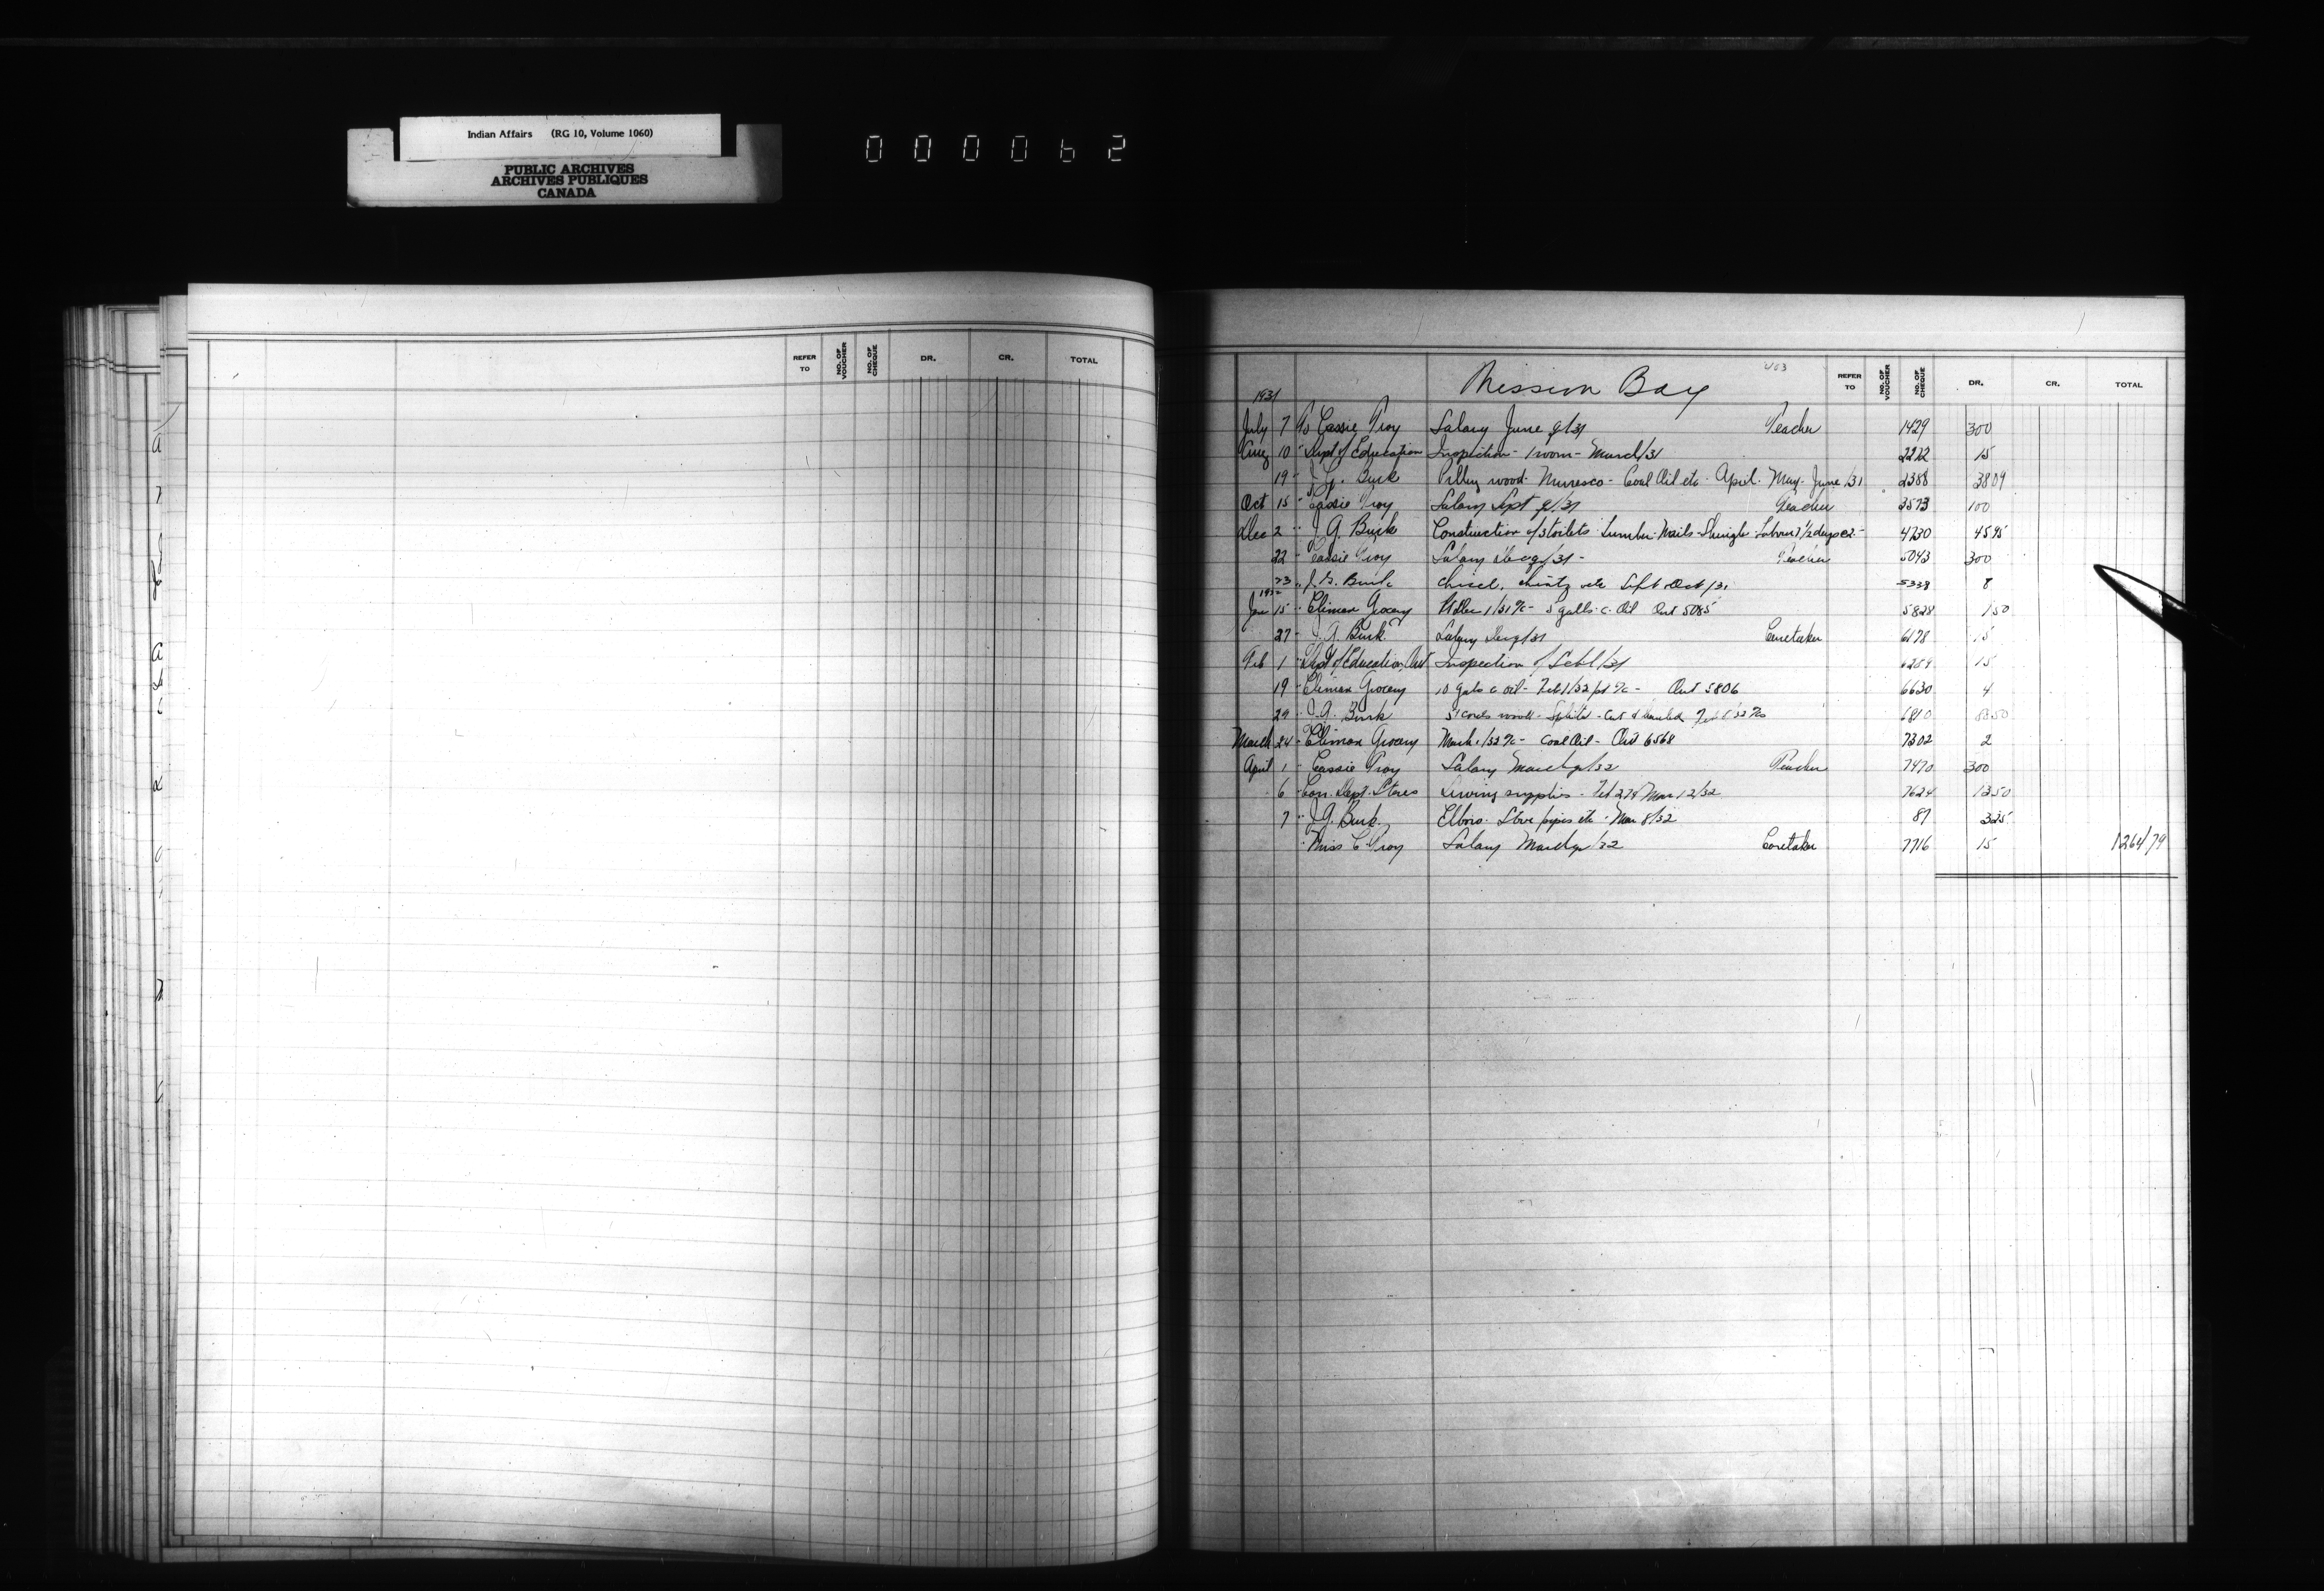 Indian Affairs (RG 10, Volume 1060)
PUBLIC ARCHIVES
ARCHIVES PUBLIQUES
CANADA
000062
REFER TO NO. OF VOUCHER NO. OF CHEQUE DR. CR. TOTAL
Mission Bay 463 REFER TO NO. OF VOUCHER NO. OF CHEQUE DR. CR. TOTAL
1931
July 7 To Cassie Troy Salary June q/31 Teacher 1429 300
Aug 10 " Dept of Education Inspection - 1 room - March/31 2272 15
19 " J. G. Burk wood - Muresco - Coal Oil etc - April - May - June /31 2388 3809
Oct 15 " Cassie Troy Salary Sept q/31 Teacher 3573 100
Dec 2 " J. G. Burk Construction of 3 toilets - Lumber - Nails - Shingle - Labour 7 1/2 days @ 2 - 4730 4595
22 " Cassie Troy Salary Dec q/31 - Teacher 5043 300
23 " J. G. Burk Chisel, etc Sept Oct/31 5338 8
1932
Jan 15 " Climax Grocery Dec 1/31 % - 5 galls c. Oil Ord 5085 5828 150
27 " J. G. Burk Salary Dec q/31 Caretaker 6178 15
Feb 1 " Dept of Education, Ont Inspection of Schl/31 15
19 " Climax Grocery 10 gals c oil - Feb 1/32 % - Ord 5806 6630 4
29 " J. G. Burk cords wood - - Cut & hauled Feb /32 6810 5850
March 24 " Climax Grocery Mach 1/32 % - Coal Oil - Ord 6568 7302 2
April 1 " Cassie Troy Salary March q/32 Teacher 7470 300
6 " Con. Dept. Stores Sewing supplies - Feb 27 & Mar 12/32 7624 1350
7 " J. G. Burk. Elbow - Stove pipes etc - Mar 8/32 87 325
" Miss C. Troy Salary March q/32 Caretaker 7716 15 1264 79